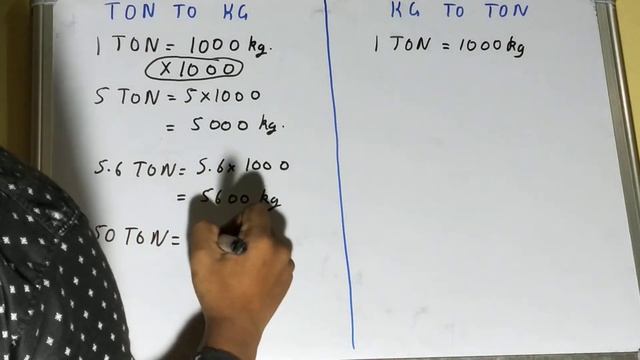 TON TO KG
1 TON = 1000 kg.
×1000
5 TON = 5×1000
= 5000 kg.
5.6 TON = 5.6×1000
= 5600 kg
50 TON =
KG TO TON
1 TON = 1000 kg